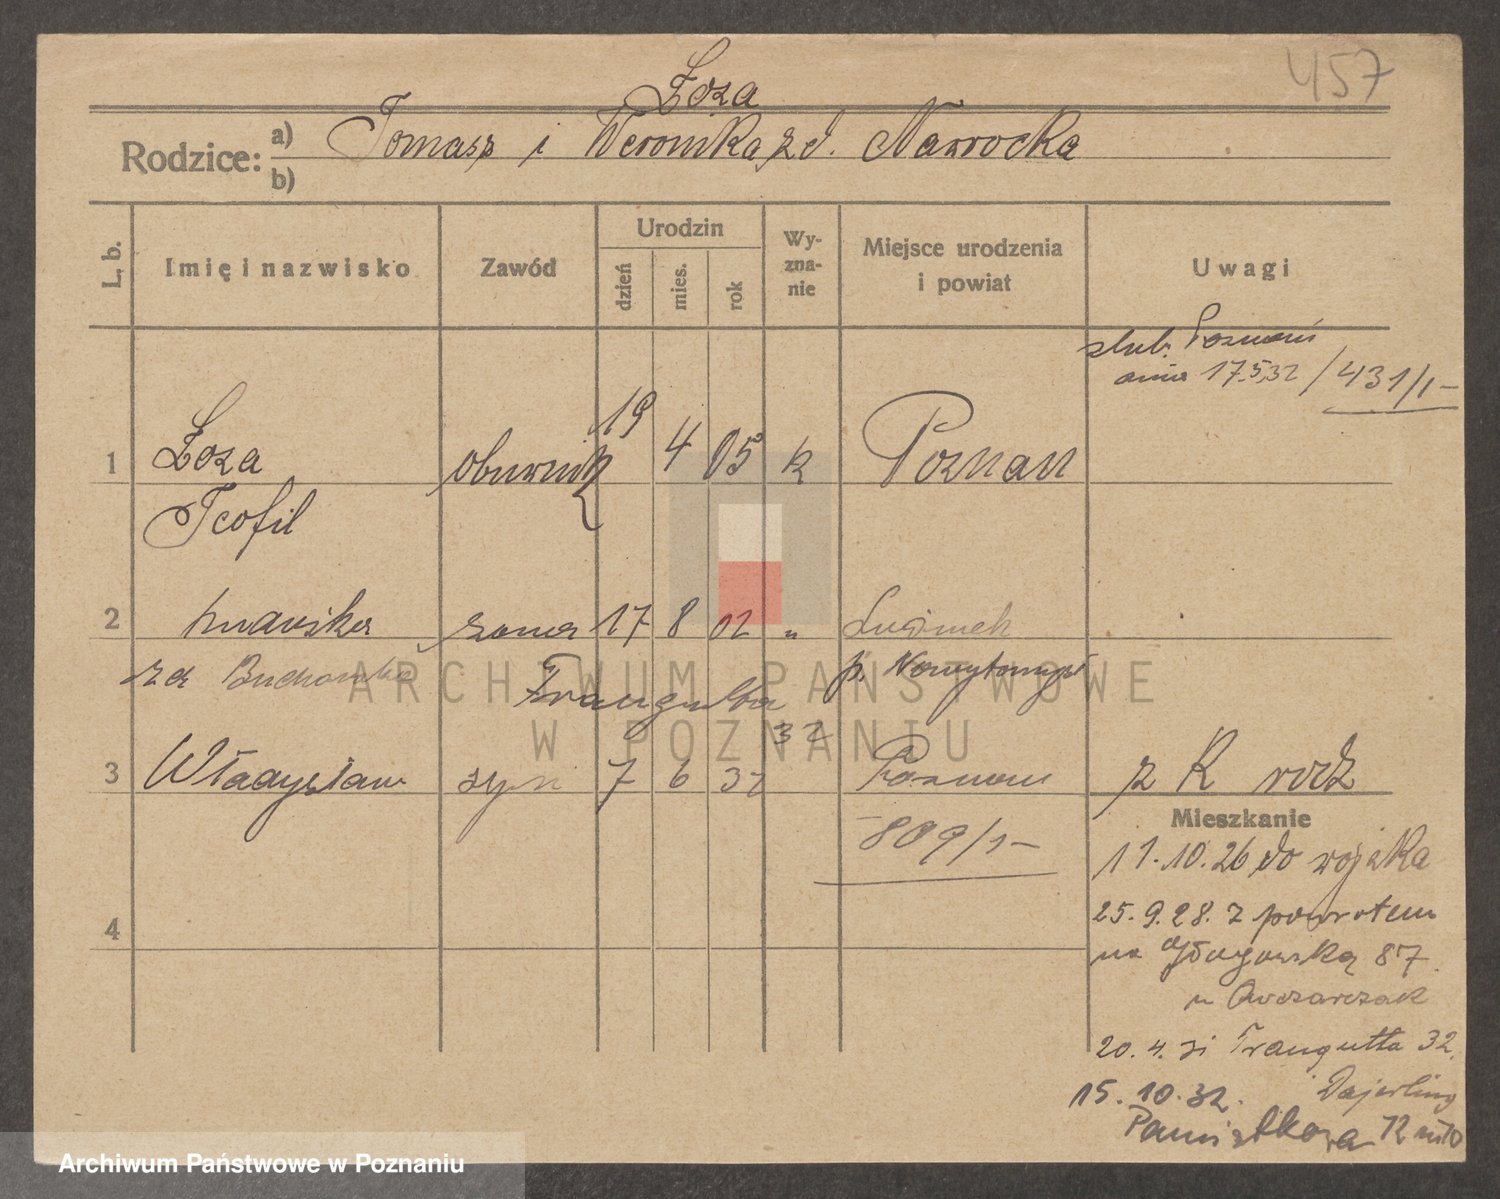 457
Łoza
Rodzice: a) Tomasz i Weronika z d. Nawrocka
b)
L. b.
Imię i nazwisko
Zawód
Urodzin
dzień
mies.
rok
Wy-
zna-
nie
Miejsce urodzenia
i powiat
Uwagi
ślub. Poznań
dnia 17.5.32 / 431/1-
1 Łoza obuwnik 19 4 05 k Poznań
Teofil
2 żona 17 8 02 „
zd p. Nowytomyśl
Traugutta
32
3 Władysław syn 7 6 32 Poznań z K rodz
809/1-
Mieszkanie
11.10.26 do wojska
25.9.28. z powrotem
4
na Głogowską 87
u Owczarczak
20.4.31 Traugutta 32.
15.10.32.
12
ARCHIWUM PAŃSTWOWE
W POZNANIU
Archiwum Państwowe w Poznaniu